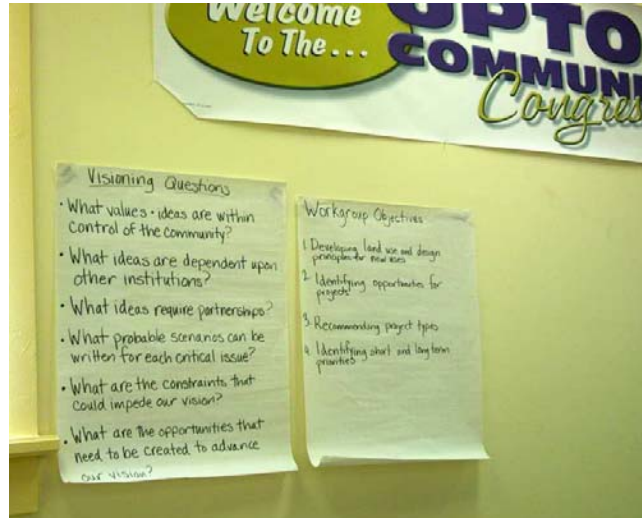 Welcome
To The...
UPTO
COMMUNI
Congres
Visioning Questions
• What values + ideas are within
control of the community?
• What ideas are dependent upon
other institutions?
• What ideas require partnerships?
• What probable scenarios can be
written for each critical issue?
• What are the constraints that
could impede our vision?
• What are the opportunities that
need to be created to advance
our vision?
Workgroup Objectives
1. Developing land use and design
principles for new uses
2. Identifying opportunities for
projects
3. Recommending project types
4. Identifying short and long term
priorities